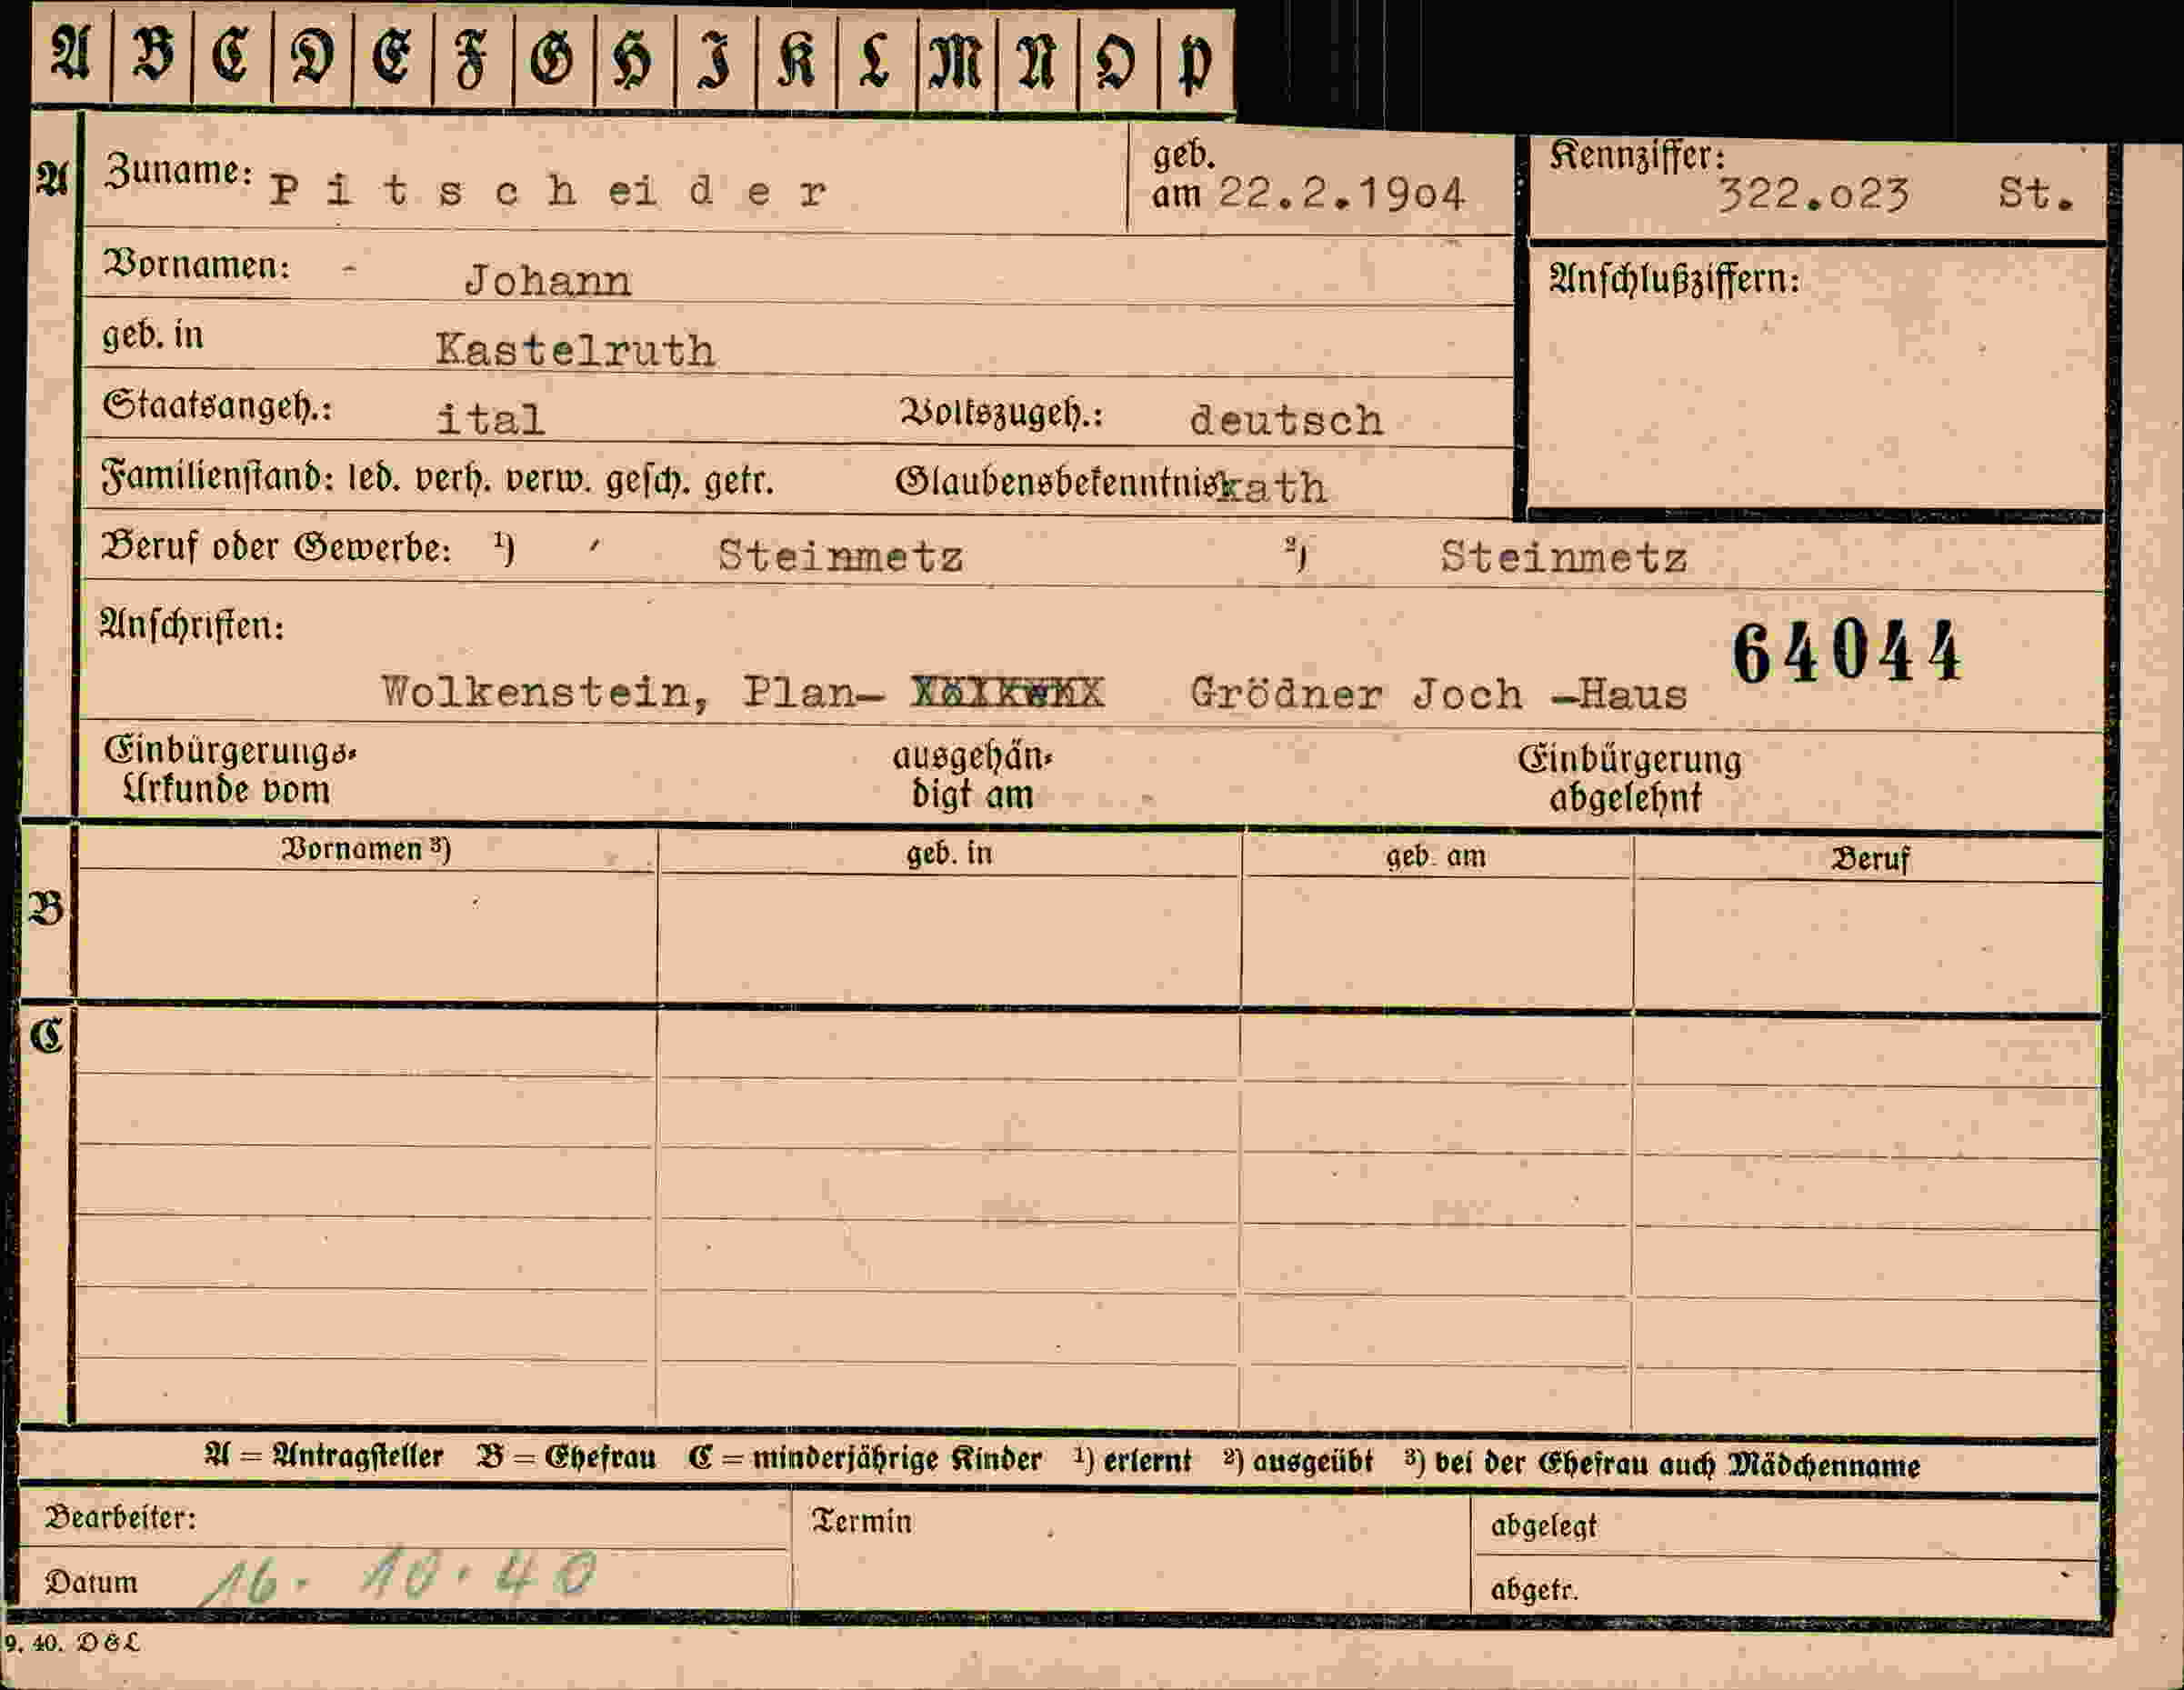 A B C D E F G H I K L M N O P
A Zuname: Pitscheider geb. am 22.2.19o4 Kennziffer: 322.o23 St.
Vornamen: - Johann Anschlußziffern:
geb. in Kastelruth
Staatsangeh.: ital Volkszugeh.: deutsch
Familienstand: led. verh. verw. gesch. getr. Glaubensbekenntnis kath
Beruf oder Gewerbe: 1) Steinmetz 2) Steinmetz
Anschriften: 64044
Wolkenstein, Plan- Grödner Joch -Haus
Einbürgerungs- ausgehän- Einbürgerung
Urkunde vom digt am abgelehnt
Vornamen 3) geb. in geb. am Beruf
B
C
A = Antragsteller B = Ehefrau C = minderjährige Kinder 1) erlernt 2) ausgeübt 3) bei der Ehefrau auch Mädchenname
Bearbeiter: Termin abgelegt
Datum 16. 10. 40 abgetr.
9. 40. D&L